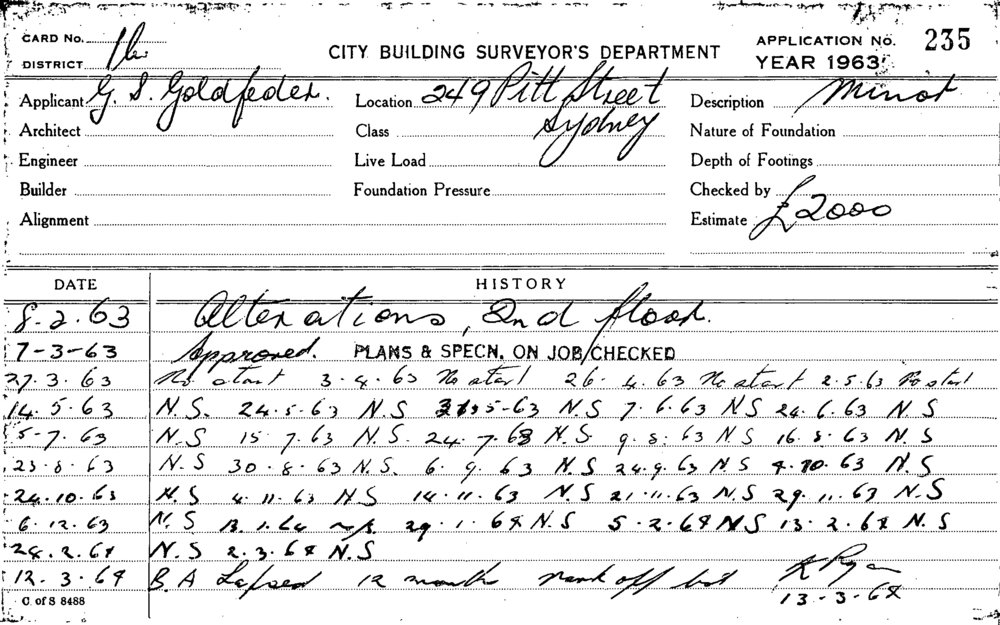 CARD No. 16
DISTRICT
CITY BUILDING SURVEYOR'S DEPARTMENT
APPLICATION No. 235
YEAR 1963
Applicant G. S. Goldfeder.
Location 249 Pitt Street
Sydney
Description Minor
Architect
Class
Nature of Foundation
Engineer
Live Load
Depth of Footings
Builder
Foundation Pressure
Checked by
Alignment
Estimate £2000
DATE HISTORY
8.2.63 Alterations, 2nd floor.
7-3-63 Approved. PLANS & SPECN. ON JOB CHECKED
27.3.63 No start 3.4.63 No start 26.4.63 No start 2.5.63 No start
14.5.63 N.S. 24.5.63 N.S 31.5-63 N.S 7.6.63 N.S 24.6.63 N.S
5-7.63 N.S 15.7.63 N.S. 24.7.63 N.S. 9.8.63 N.S 16.8.63 N.S
23.8.63 N.S 30.8.63 N.S. 6.9.63 N.S 24.9.63 N.S 4.10.63 N.S
24.10.63 N.S 4.11.63 N.S 14.11.63 N.S 21.11.63 N.S 29.11.63 N.S
6.12.63 N.S 13.1.64 N.S. 29.1.64 N.S 5.2.64 N.S 13.2.64 N.S
24.2.64 N.S 2.3.64 N.S
12.3.64 B.A Lapsed 12 months mark off list K Ryan
13-3-64
C. of S 8488